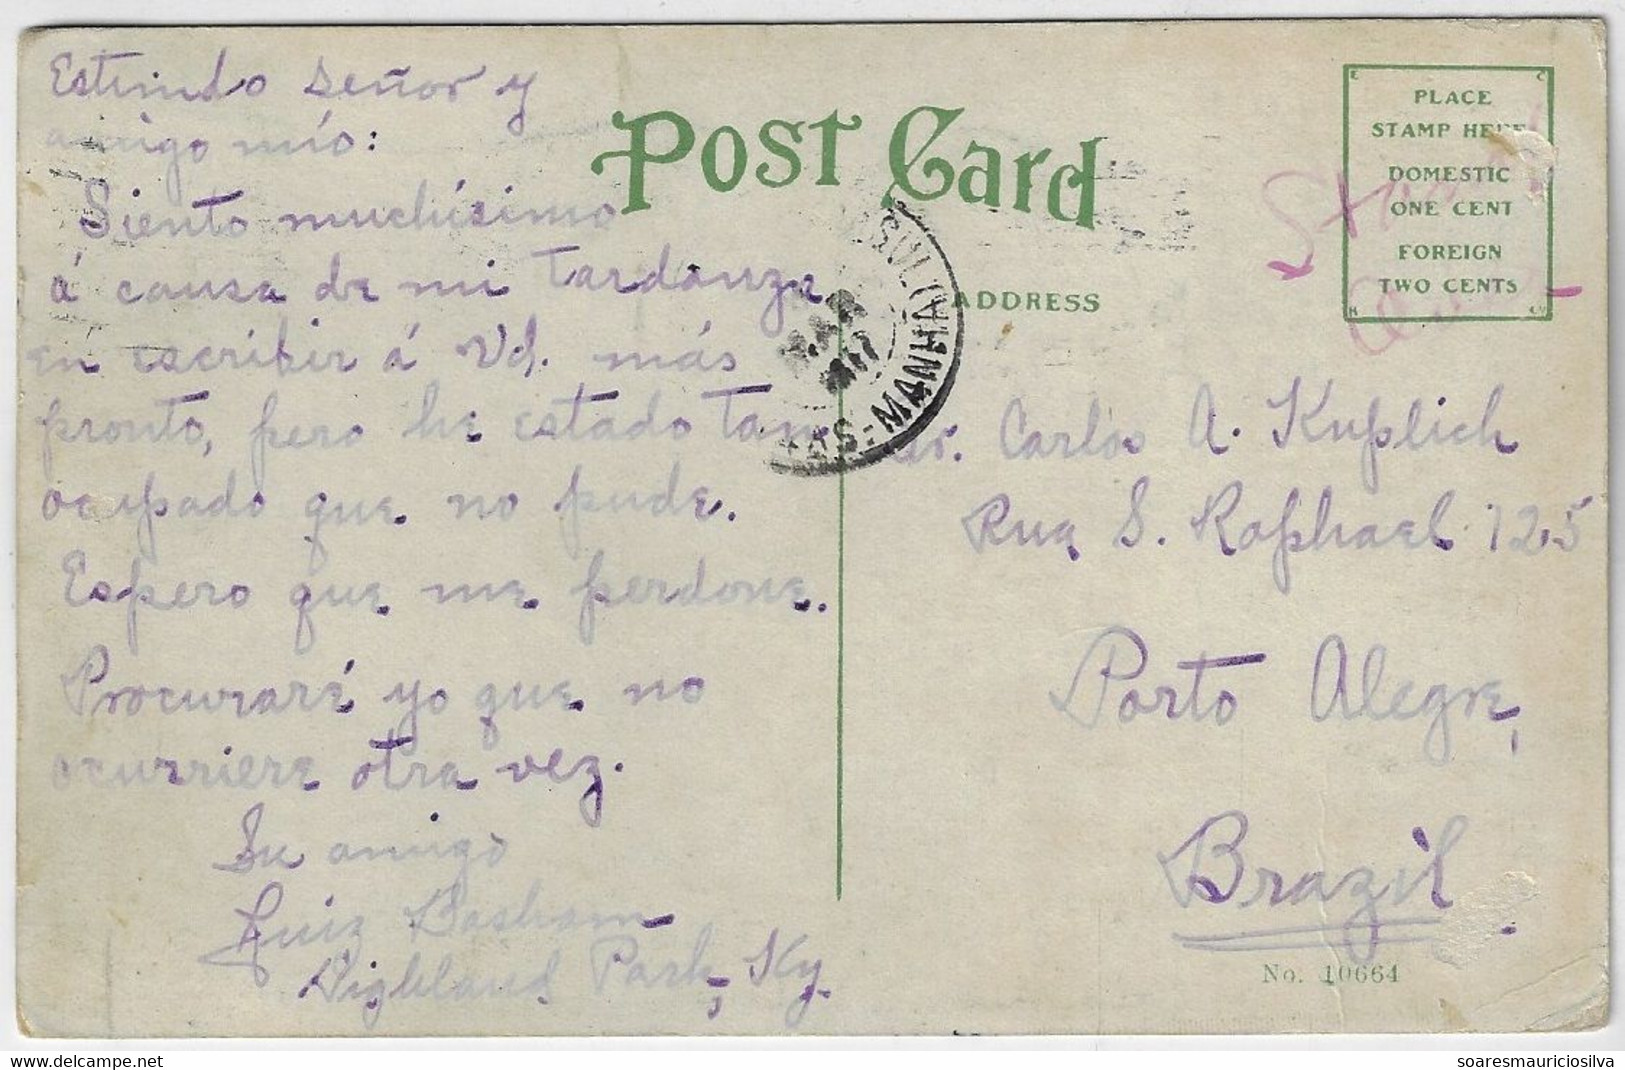 Estimdo señor y
amigo mío:
Siento muchísimo
á causa de mi tardanza
en escribir á Vd. más
pronto, pero he estado tan
ocupado que no pude.
Espero que me perdone.
Procuraré yo que no
ocurriere otra vez.
Su amigo
Luiz Basham
Highland Park, Ky.
Post Card
ADDRESS
PLACE
STAMP HERE
DOMESTIC
ONE CENT
FOREIGN
TWO CENTS
SUL
MANHÃ
Sr. Carlos A. Kuplich
Rua S. Raphael 125
Porto Alegre,
Brazil
No. 10664
soaresmauriciosilva